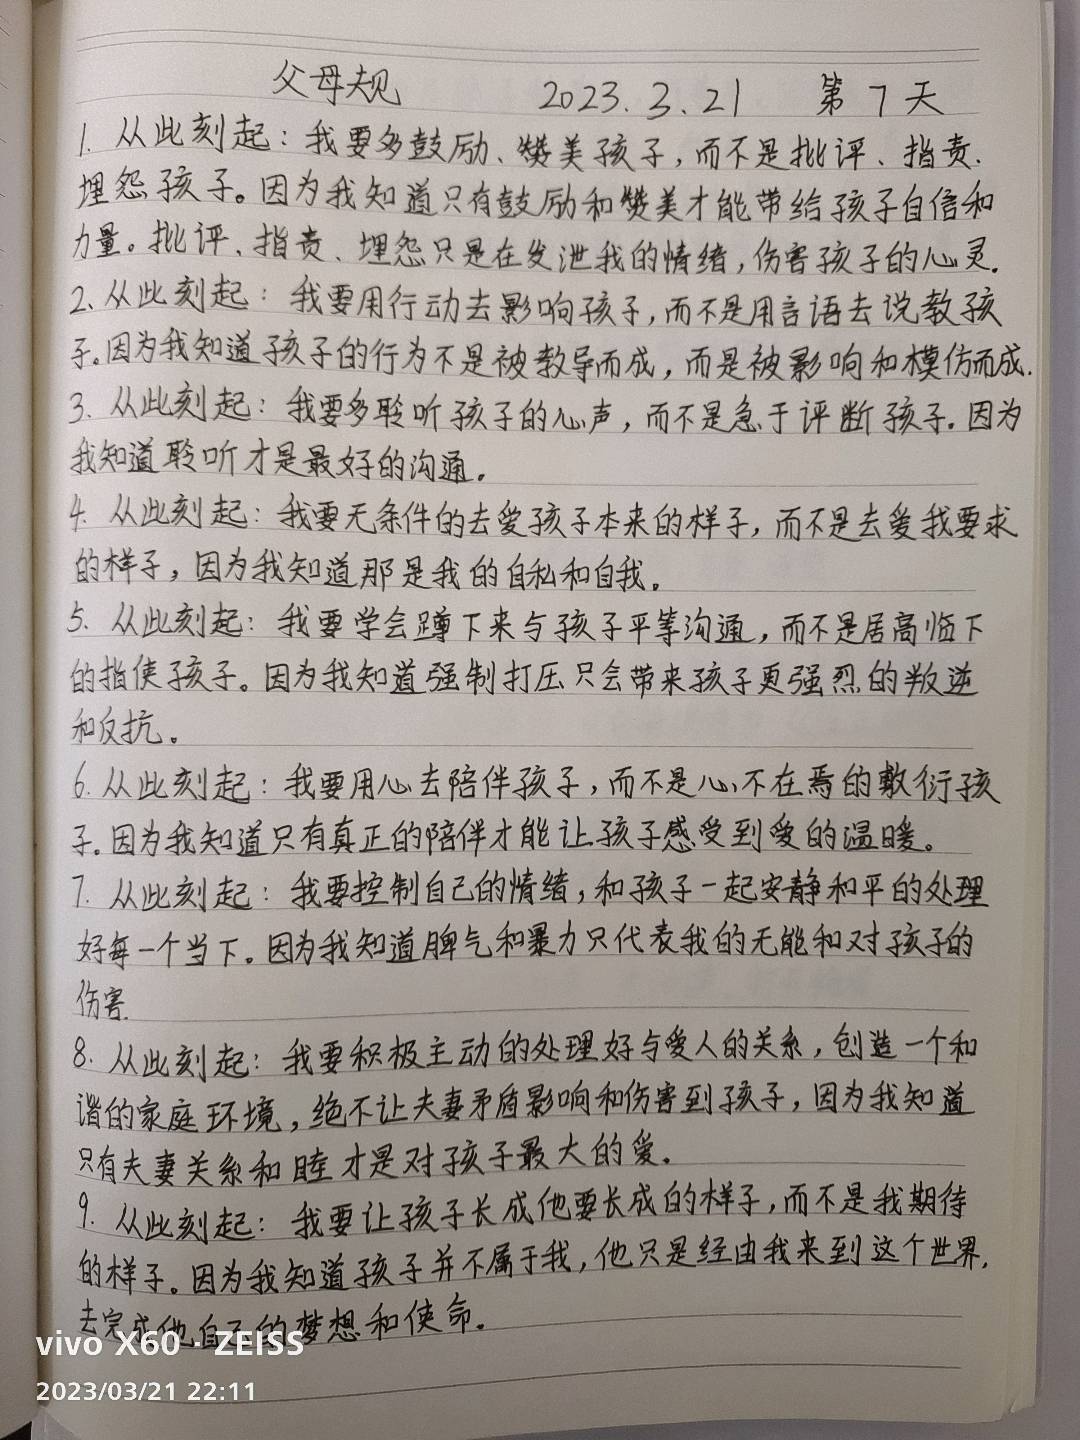 父母规 2023.3.21 第7天
1. 从此刻起：我要多鼓励、赞美孩子，而不是批评、指责、
埋怨孩子。因为我知道只有鼓励和赞美才能带给孩子自信和
力量。批评、指责、埋怨只是在发泄我的情绪，伤害孩子的心灵。
2. 从此刻起：我要用行动去影响孩子，而不是用言语去说教孩
子。因为我知道孩子的行为不是被教导而成，而是被影响和模仿而成.
3. 从此刻起：我要多聆听孩子的心声，而不是急于评断孩子。因为
我知道聆听才是最好的沟通。
4. 从此刻起：我要无条件的去爱孩子本来的样子，而不是去爱我要求
的样子，因为我知道那是我的自私和自我。
5. 从此刻起：我要学会蹲下来与孩子平等沟通，而不是居高临下
的指使孩子。因为我知道强制打压只会带来孩子更强烈的叛逆
和反抗。
6. 从此刻起：我要用心去陪伴孩子，而不是心不在焉的敷衍孩
子。因为我知道只有真正的陪伴才能让孩子感受到爱的温暖。
7. 从此刻起：我要控制自己的情绪，和孩子一起安静和平的处理
好每一个当下。因为我知道脾气和暴力只代表我的无能和对孩子的
伤害.
8. 从此刻起：我要积极主动的处理好与爱人的关系，创造一个和
谐的家庭环境，绝不让夫妻矛盾影响和伤害到孩子，因为我知道
只有夫妻关系和睦才是对孩子最大的爱。
9. 从此刻起：我要让孩子长成他要长成的样子，而不是我期待
的样子。因为我知道孩子并不属于我，他只是经由我来到这个世界，
去完成他自己的梦想和使命。
vivo X60 · ZEISS
2023/03/21 22:11